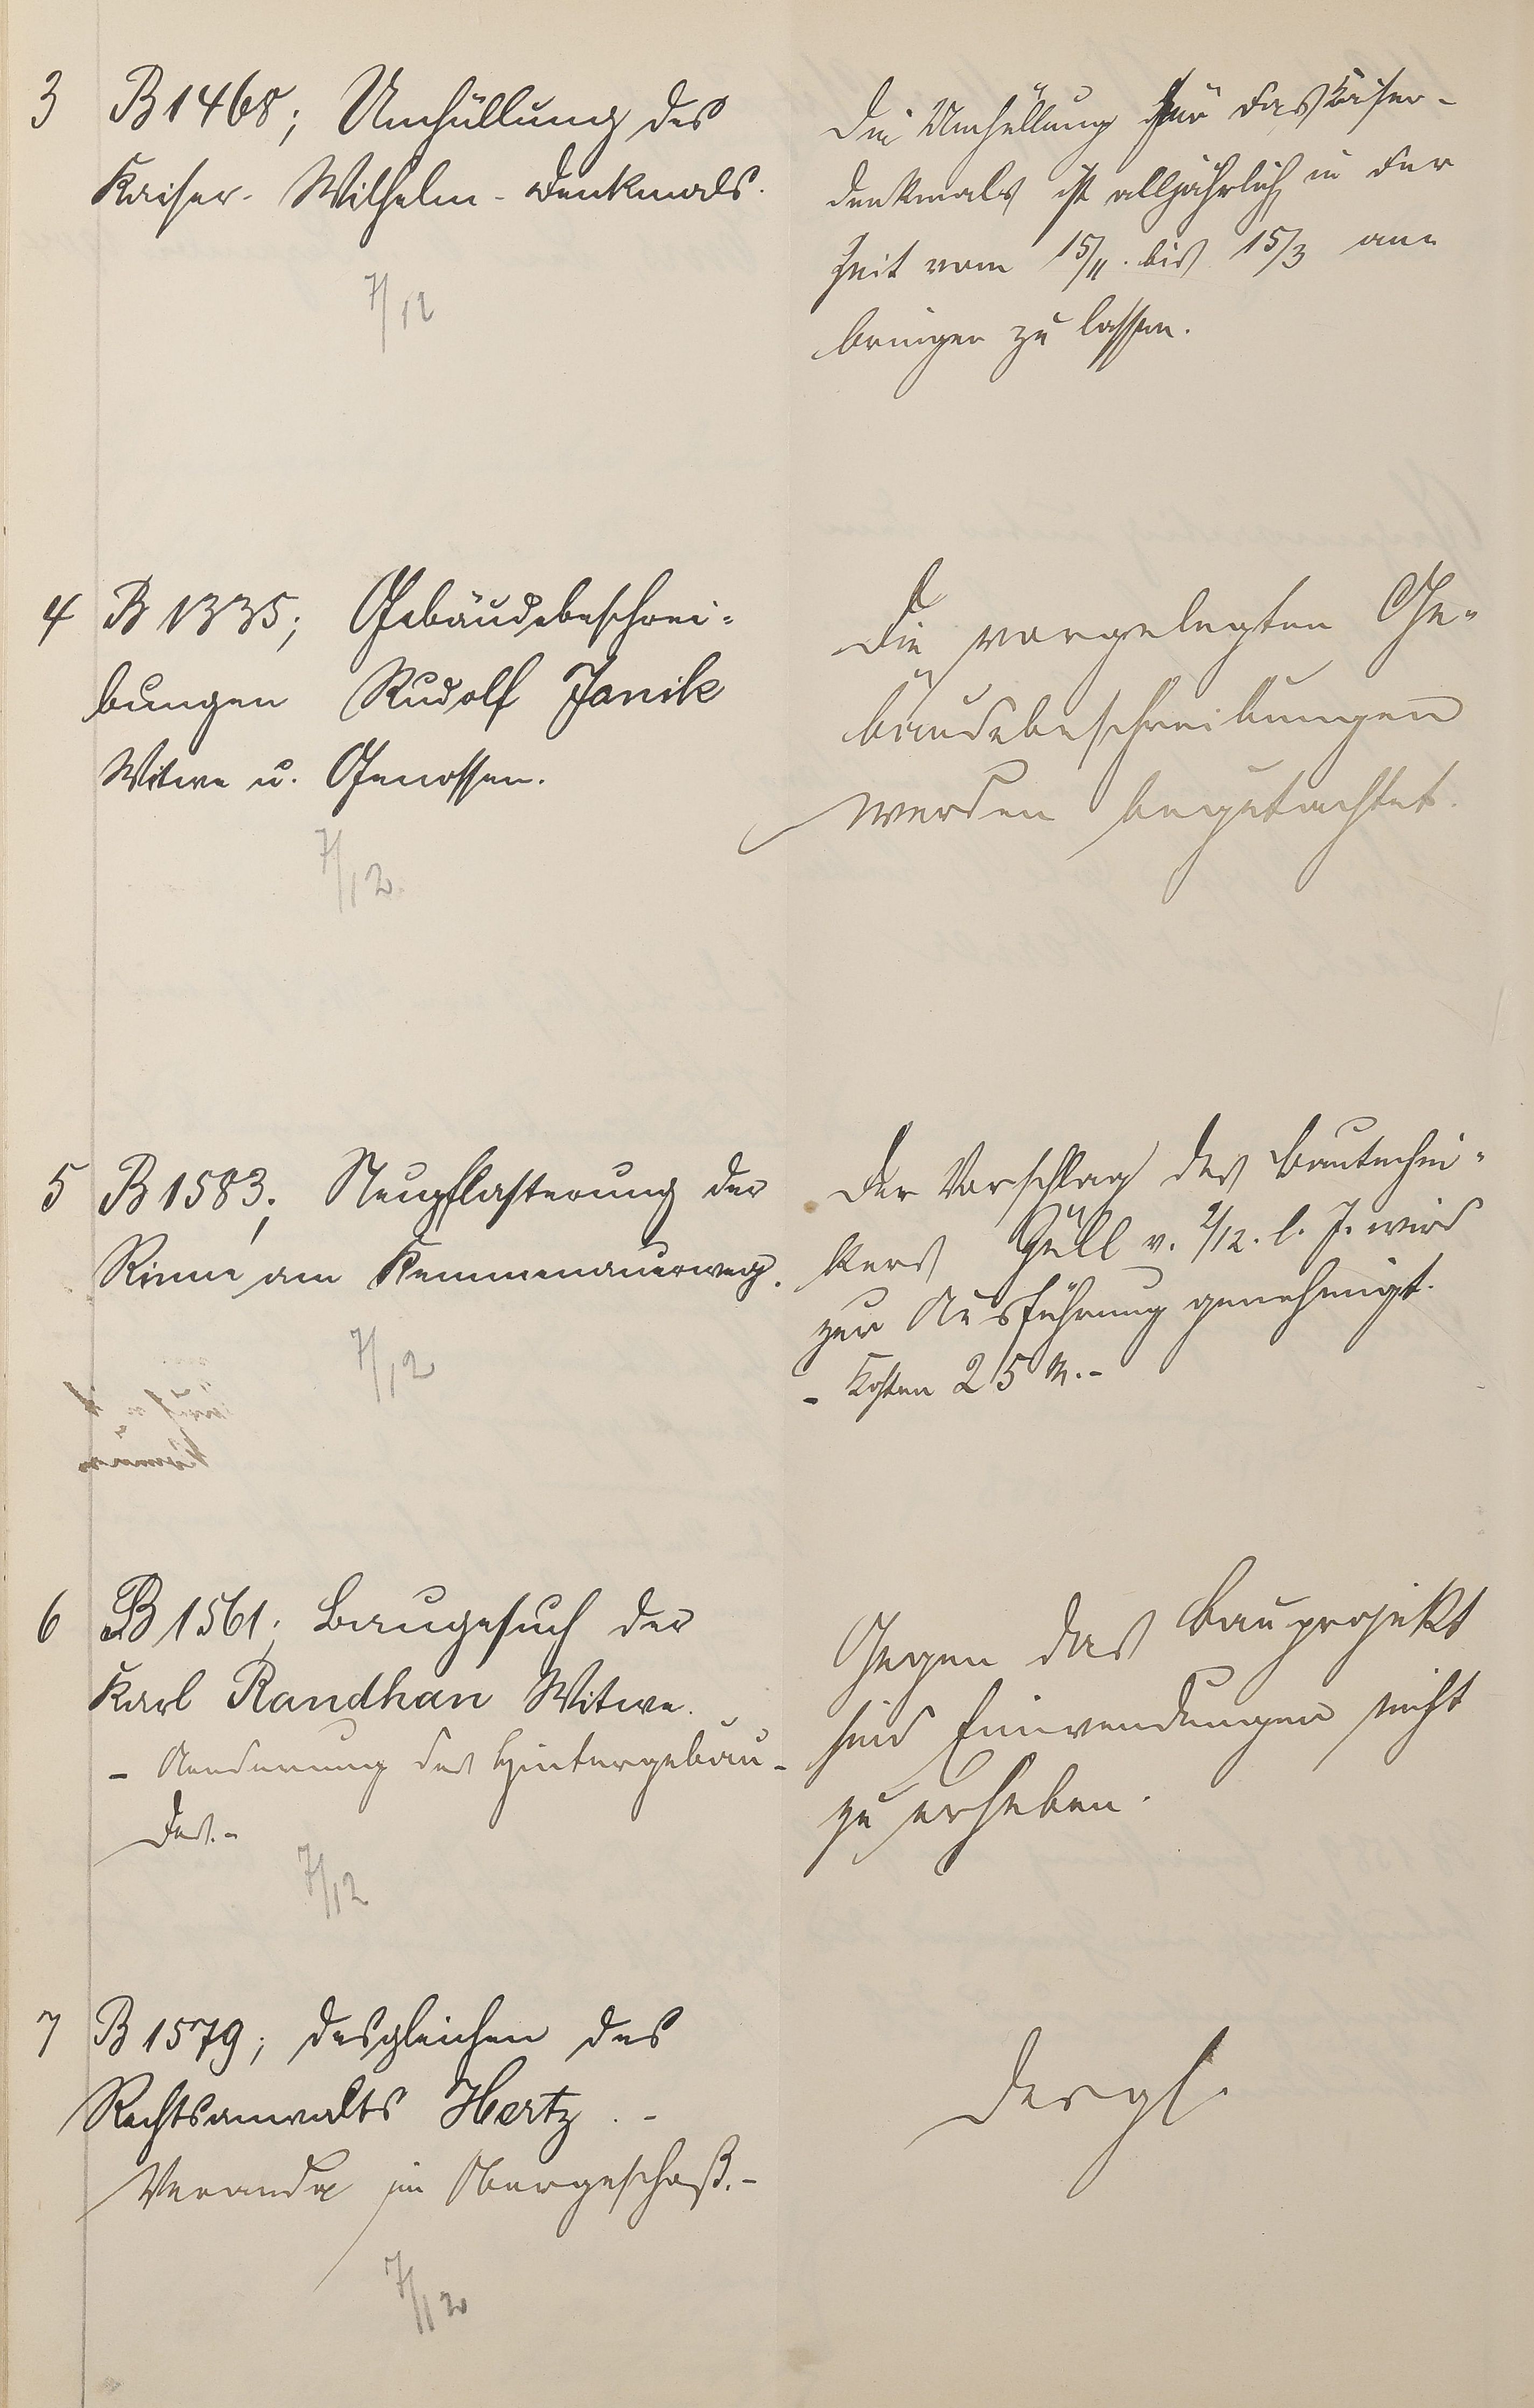 3 B 1468; Umhüllung des
Kaiser-Wilhelm-Denkmals.
7/12
Die Umhüllung für das Kaiser-
denkmals ist alljährlich in der
Zeit vom 15/11. bis 15/3 an-
bringen zu lassen.
4 B 1335; Gebäudebeschrei-
bungen Rudolf Janik
Witwe u. Genossen.
7/12
Die vorgelegten Ge-
bäudebeschreibungen
werden begutachtet.
5 B 1583; Neupflasterung der
Rinne am Kemmenauerweg.
7/12
Der Vorschlag des Bautechni-
kers Güll v. 2/12. l. J. wird
zur Ausführung genehmigt.
- Kosten 25 M. -
6 B 1561; Baugesuch der
Karl Randhan Witwe.
- Aenderung des Hintergebäu-
des. -
7/12
Gegen das Bauprojekt
sind Einwendungen nicht
zu erheben.
7 B 1579; desgleichen des
Rechtsanwalts Hertz. -
Veranda im Obergeschoß. -
7/12
desgl.